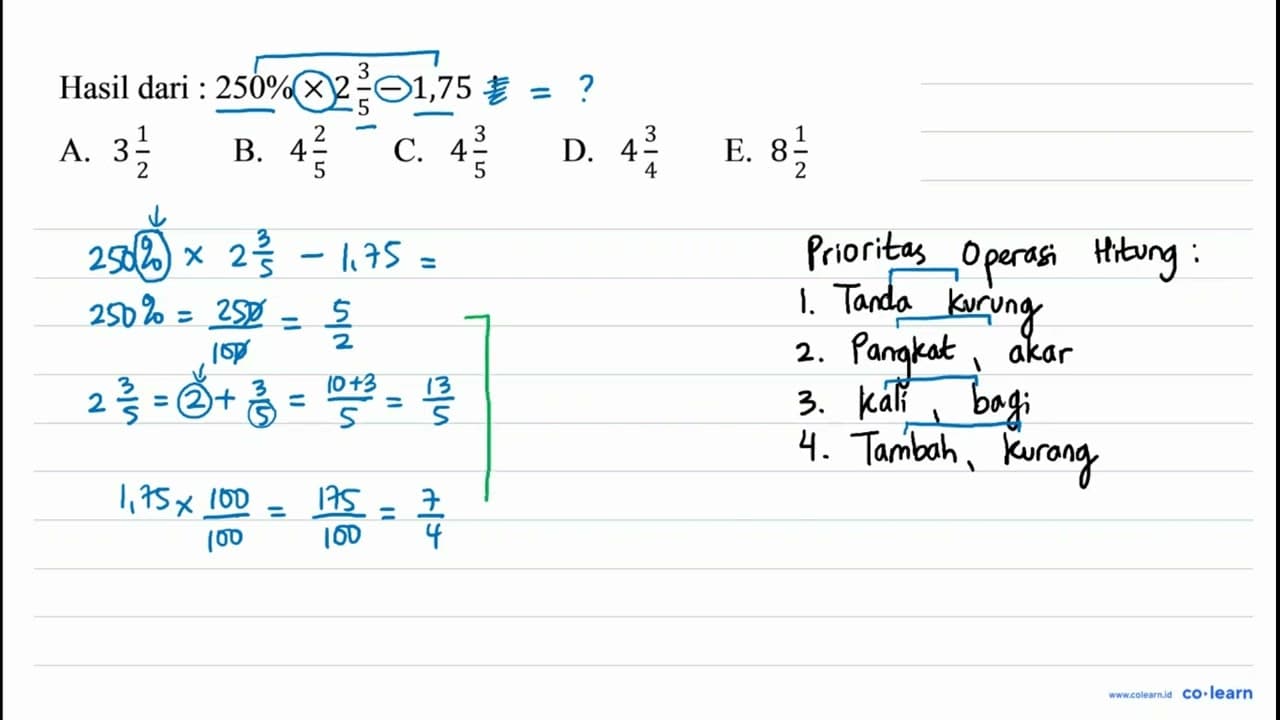 Hasil dari : 250% × 2 3/5 − 1,75 = ?
A. 3 1/2 B. 4 2/5 C. 4 3/5 D. 4 3/4 E. 8 1/2
250% × 2 3/5 − 1,75 =
250% = 250/100 = 5/2
2 3/5 = 2 + 3/5 = 10+3/5 = 13/5
1,75 × 100/100 = 175/100 = 7/4
Prioritas Operasi Hitung :
1. Tanda kurung
2. Pangkat, akar
3. kali, bagi
4. Tambah, kurang
www.colearn.id co·learn